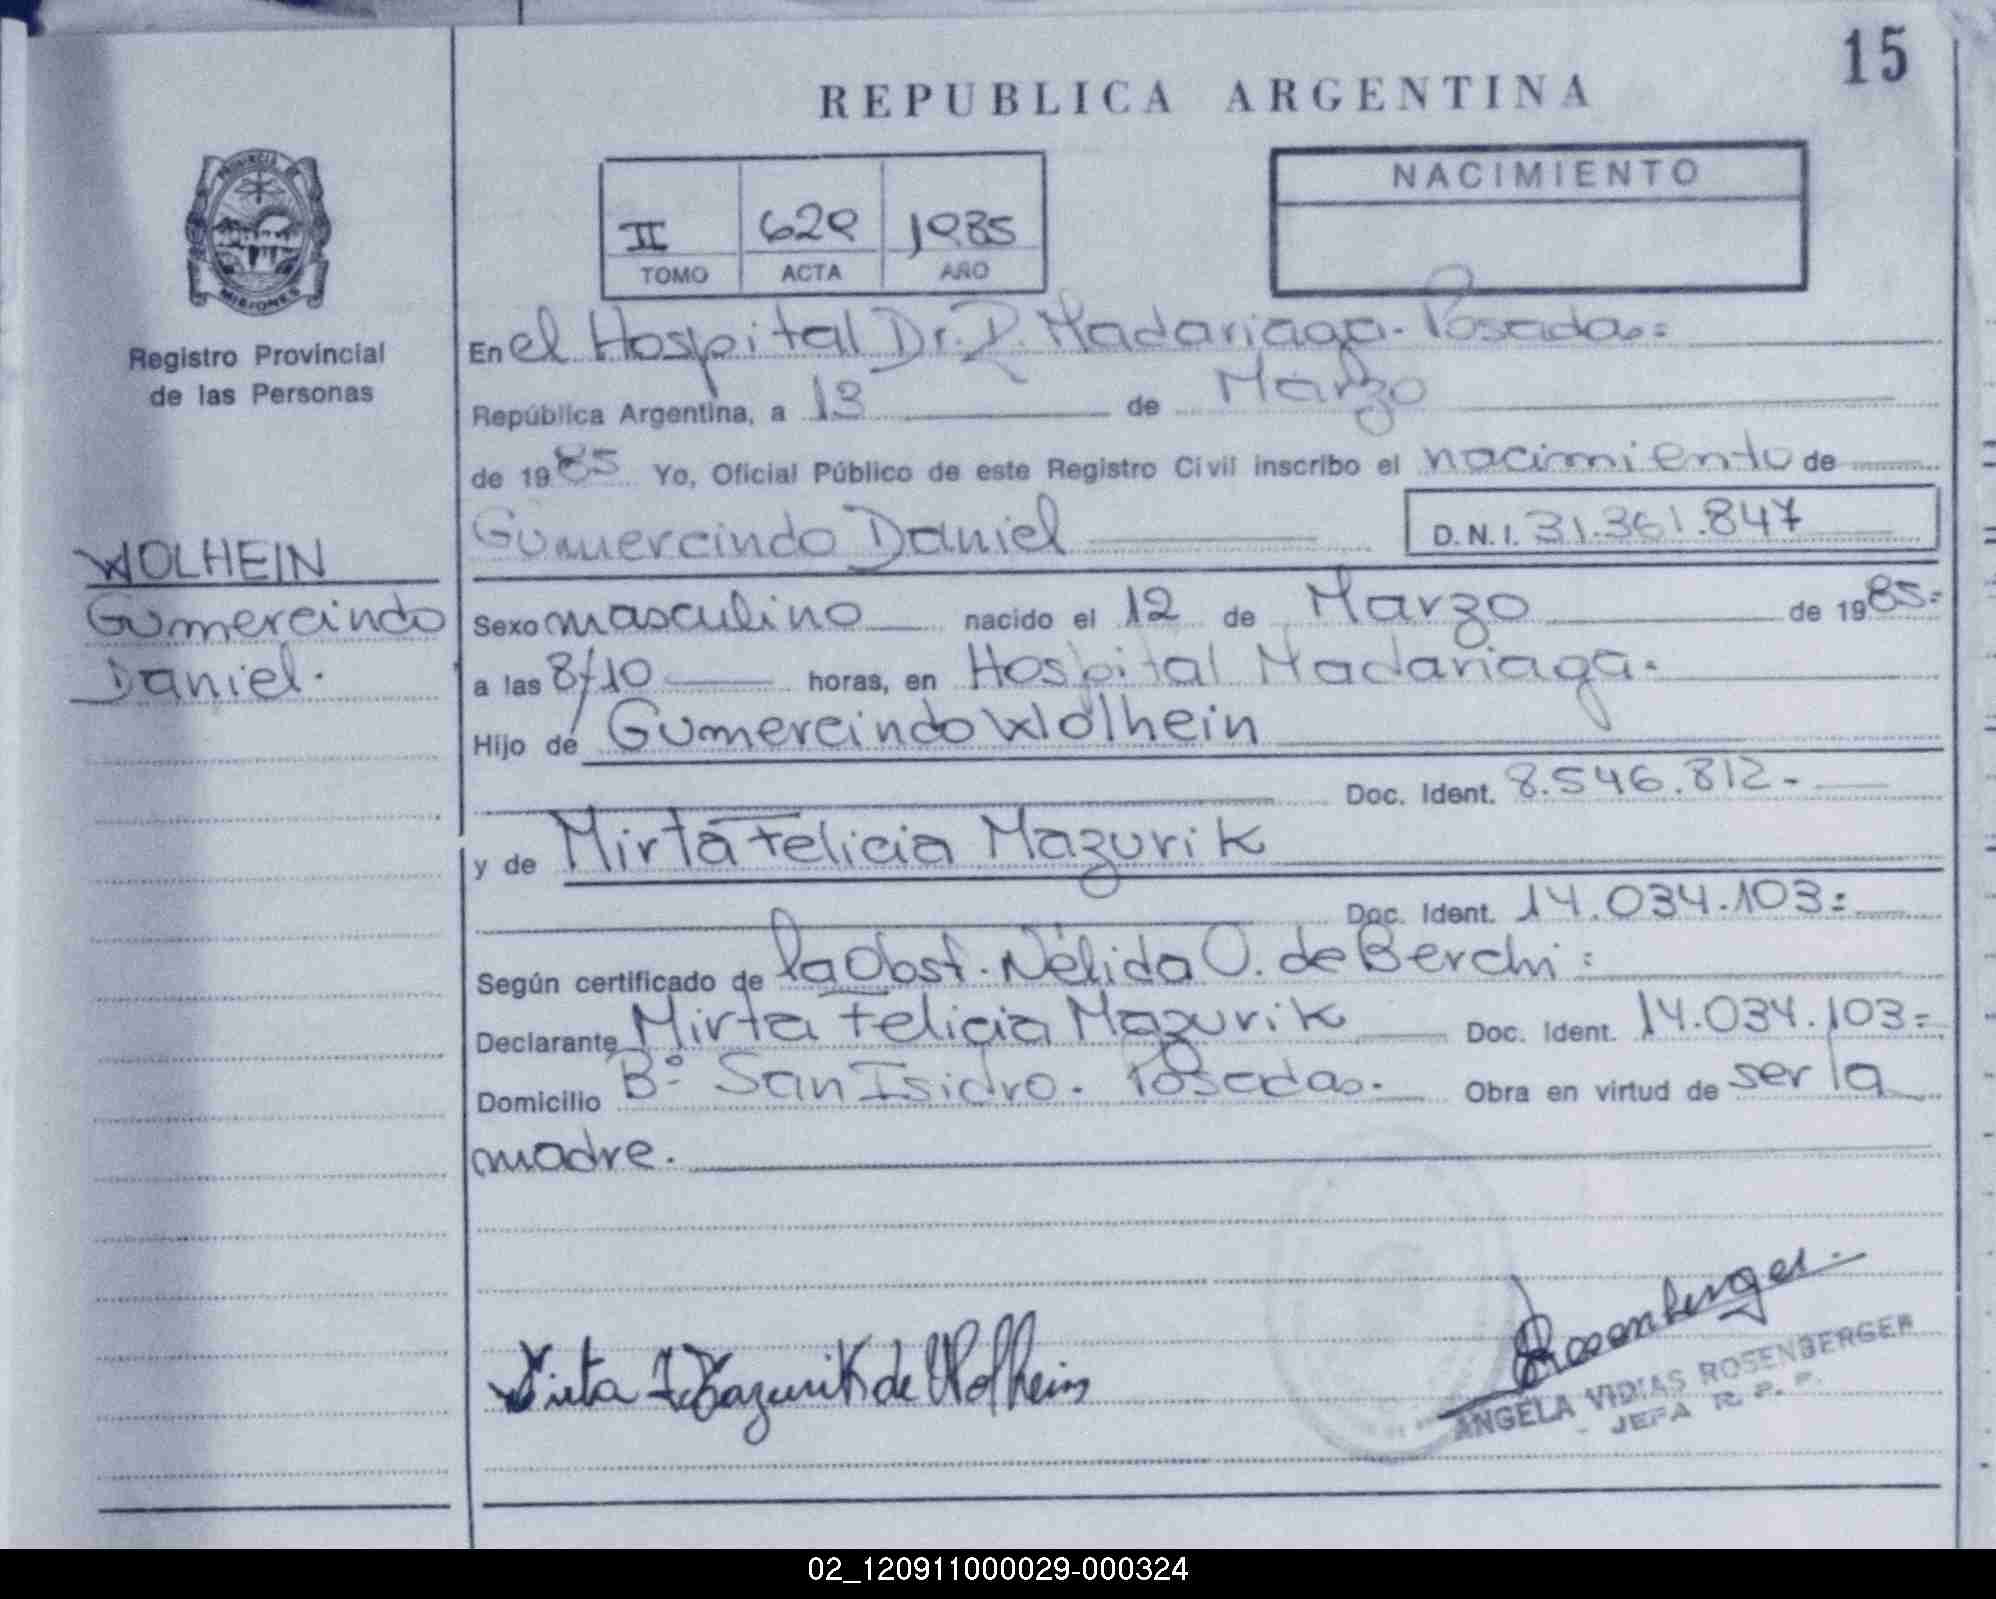 15
REPUBLICA ARGENTINA
NACIMIENTO
II 629 1985
TOMO ACTA AÑO
PROVINCIA
MISIONES
Registro Provincial
de las Personas
WOLHEIN
Gumercindo
Daniel.
En el Hospital Dr. R. Madariaga. Posadas=
República Argentina, a 13 de Marzo
de 1985 Yo, Oficial Público de este Registro Civil inscribo el nacimiento de
Gumercindo Daniel D.N.I. 31.361.847
Sexo masculino nacido el 12 de Marzo de 1985=
a las 8/10 horas, en Hospital Madariaga.
Hijo de Gumercindo Wolhein
Doc. Ident. 8.546.812-
y de Mirta Felicia Mazurik
Doc. Ident. 14.034.103=
Según certificado de la Obst. Nélida O. de Berchi:
Declarante Mirta Felicia Mazurik Doc. Ident. 14.034.103=
Domicilio Bº San Isidro. Posadas. Obra en virtud de ser la
madre.
Mirta F. Mazurik de Wolhein
Rosenberger
ANGELA VIDIAS ROSENBERGER
JEFA R. P. P.
02_120911000029-000324